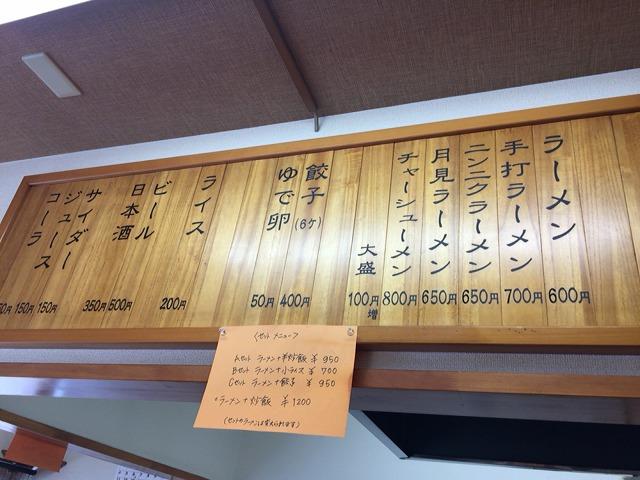 ラーメン 600円
手打ラーメン 700円
ニンニクラーメン 650円
月見ラーメン 650円
チャーシューメン 800円
大盛 100円増
餃子(6ケ) 400円
ゆで卵 50円
ライス 200円
ビール 500円
日本酒 350円
サイダー 150円
ジュース 150円
コーラ 50円
〈セットメニュー〉
Aセット ラーメン+半炒飯 ¥950
Bセット ラーメン+小ライス ¥700
Cセット ラーメン+餃子 ¥950
ラーメン+炒飯 ¥1200
(セットのラーメンは変えられます)